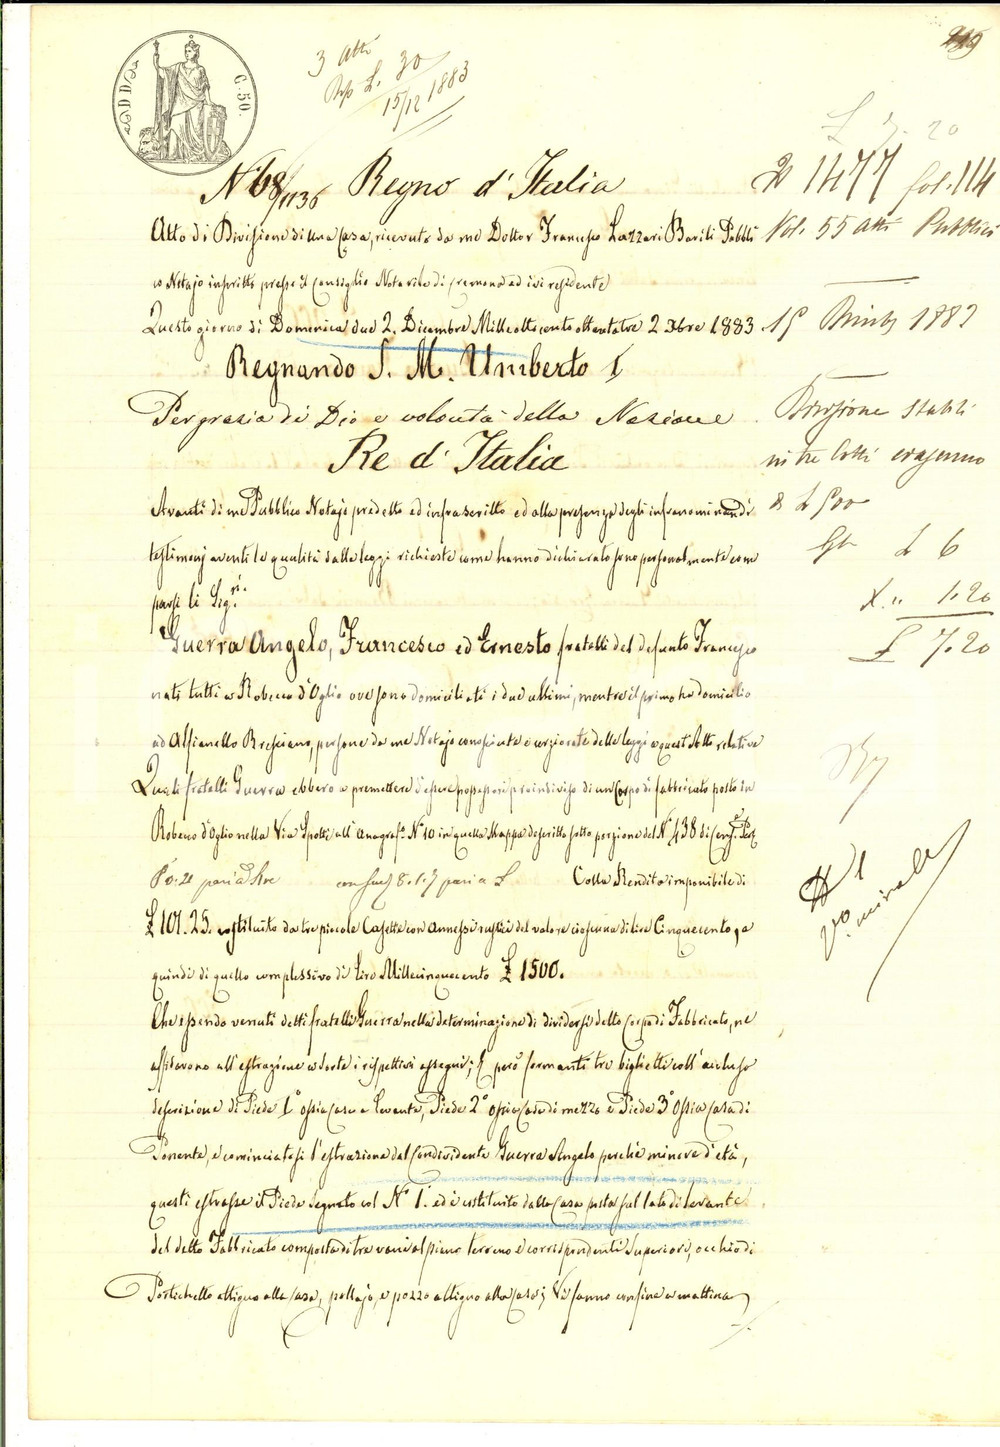 C. 50.
3 Atti
Rep L. 30
15/12 1883
N° 68/1136 Regno d'Italia
Atto di Divisione di una Casa, ricevuto da me Dottor Francesco Lazzari Barili Pubbli
co Notajo inscritto presso il Consiglio Notarile di Cremona ed ivi residente
Questo giorno di Domenica due 2. Dicembre Milleottocento ottantatre 2 Xbre 1883
Regnando S. M. Umberto I
Per grazia di Dio e volontà della Nazione
Re d'Italia
Avanti di me Pubblico Notajo predetto ed infrascritto ed alla presenza degli infranominandi
testimonj aventi le qualità dalle leggi richieste come hanno dichiarato sono personalmente com
parsi li Sig.ri
Guerra Angelo, Francesco ed Ernesto fratelli del defunto Francesco
nati tutti a Robecco d'Oglio ove sono domiciliati i due ultimi, mentre il primo ha domicilio
ad Alfianello Bresciano, persone da me Notajo conosciute e cerziorate delle leggi a quest'Atto relative
Quali fratelli Guerra ebbero a premettere d'essere possessori proindiviso di un Corpo di fabbricato posto in
Robecco d'Oglio nella Via Spotti all'anagrafo N° 10 in quella Mappa descritto sotto porzione del N° 438 di Cens.
P° 0.21 pari ad Are con Scudi 8.1.7 pari a L Colla Rendita imponibile di
£ 101.25. costituito da tre piccole Casette con annessi rustici del valore ciascuna di lire Cinquecento, e
quindi di quello complessivo di Lire Millecinquecento £ 1500.
Che essendo venuti detti fratelli Guerra nella determinazione di dividersi detto Corpo di Fabbricato, ne
affidarono all'estrazione a sorte i rispettivi assegni; E però formanti tre biglietti coll'acclusa
descrizione di Piede 1° ossia Casa a levante, Piede 2° ossia Casa di mezzo e Piede 3° ossia Casa di
Ponente, e cominciatosi l'estrazione dal Condividente Guerra Angelo perchè minore d'età,
questi estrasse il Piede segnato col N° 1. ed è costituito dalla Casa posta sul lato di levante
del detto Fabbricato composta di tre vani al piano terreno e corrispondenti superiori, occhio di
Portichetto attiguo alla casa, pollajo, e pozzo attiguo alla Casa; Vi fanno confine a mattina
£ 7. 20
N 1477 fol. 114
Vol. 55 Atti Pubblici
15 Dicembre 1883
Divisione stabili
in tre lotti ciascuno
di L 500
L 6
1.20
£ 7.20